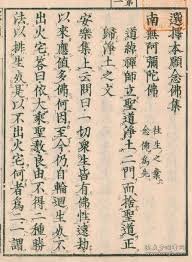 第一
選擇本願念佛集
南無阿彌陀佛
往生之業
念佛為先
道綽禪師立聖道淨土二門而捨聖道正
歸淨土之文
安樂集上云問曰一切衆生皆有佛性遠劫
以來應值多佛何因至今仍自輪迴生死不
出火宅答曰依大乘聖教良由不得二種勝
法以排生死是以不出火宅何者為二一謂